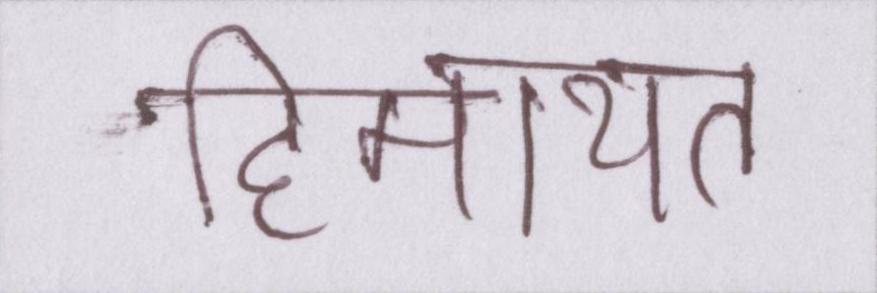 हिमायत